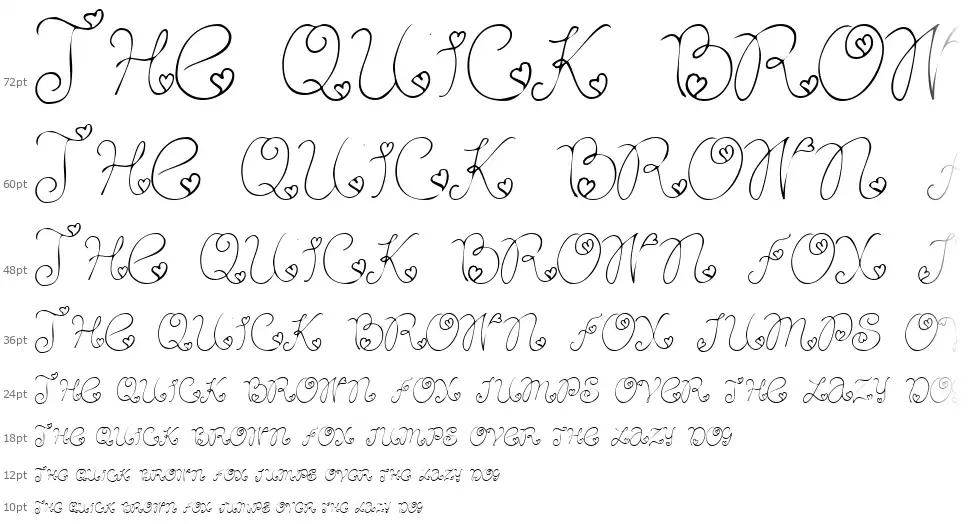 72pt THE QUICK BROWN
60pt THE QUICK BROWN
48pt THE QUICK BROWN FOX J
36pt THE QUICK BROWN FOX JUMPS OV
24pt THE QUICK BROWN FOX JUMPS OVER THE LAZY DOG
18pt THE QUICK BROWN FOX JUMPS OVER THE LAZY DOG
12pt THE QUICK BROWN FOX JUMPS OVER THE LAZY DOG
10pt THE QUICK BROWN FOX JUMPS OVER THE LAZY DOG